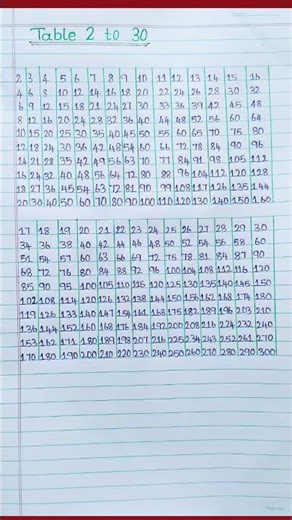 Table 2 to 30
2 3 4 5 6 7 8 9 10 11 12 13 14 15 16
4 6 8 10 12 14 16 18 20 22 24 26 28 30 32
6 9 12 15 18 21 24 27 30 33 36 39 42 45 48
8 12 16 20 24 28 32 36 40 44 48 52 56 60 64
10 15 20 25 30 35 40 45 50 55 60 65 70 75 80
12 18 24 30 36 42 48 54 60 66 72 78 84 90 96
14 21 28 35 42 49 56 63 70 77 84 91 98 105 112
16 24 32 40 48 56 64 72 80 88 96 104 112 120 128
18 27 36 45 54 63 72 81 90 99 108 117 126 135 144
20 30 40 50 60 70 80 90 100 110 120 130 140 150 160
17 18 19 20 21 22 23 24 25 26 27 28 29 30
34 36 38 40 42 44 46 48 50 52 54 56 58 60
51 54 57 60 63 66 69 72 75 78 81 84 87 90
68 72 76 80 84 88 92 96 100 104 108 112 116 120
85 90 95 100 105 110 115 120 125 130 135 140 145 150
102 108 114 120 126 132 138 144 150 156 162 168 174 180
119 126 133 140 147 154 161 168 175 182 189 196 203 210
136 144 152 160 168 176 184 192 200 208 216 224 232 240
153 162 171 180 189 198 207 216 225 234 243 252 261 270
170 180 190 200 210 220 230 240 250 260 270 280 290 300